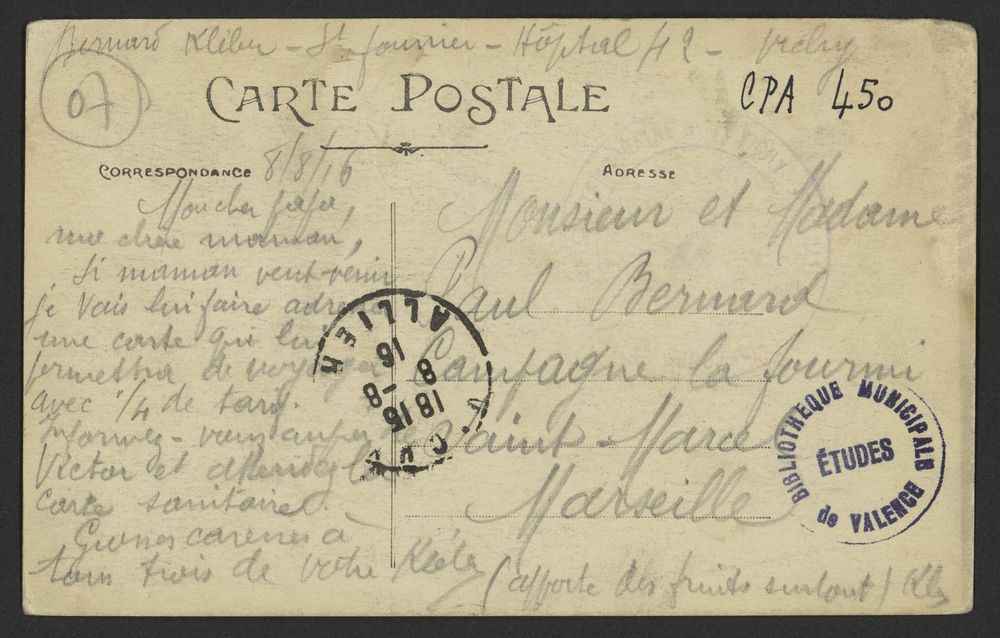 Bernard Kléber - St fourrier - Hôpital 42 - Vichy
07
CARTE POSTALE
CPA 450
CORRESPONDANCE
8/8/16
ADRESSE
Mon cher papa,
ma chère maman,
Si maman veut venir
je vais lui faire
une carte qui lui
permettra de voyager
avec 1/4 de tarif.
Informez-vous auprès
Victor et
carte sanitaire.
Grosses caresses à
tous trois de votre Kléber
(apporte des fruits surtout) Kléb
Monsieur et Madame
Paul Bernard
Campagne la
Saint-Marcel
Marseille
ALLIER
18 15
8 - 8
16
BIBLIOTHÈQUE MUNICIPALE
ÉTUDES
de VALENCE